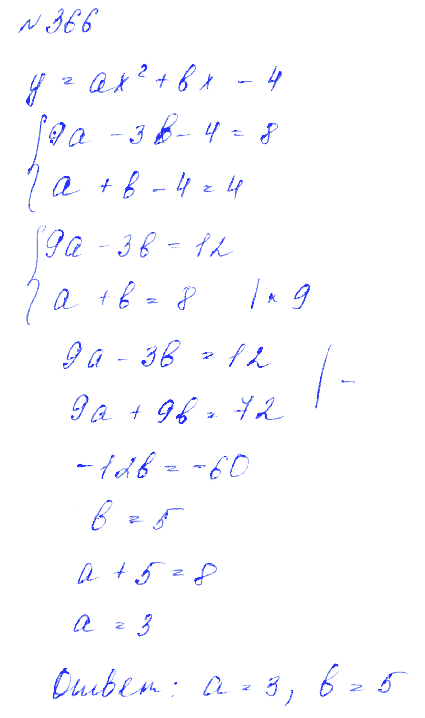 №366
y = ax² + bx - 4
9a - 3b - 4 = 8
a + b - 4 = 4
9a - 3b = 12
a + b = 8 | × 9
9a - 3b = 12
9a + 9b = 72 | -
-12b = -60
b = 5
a + 5 = 8
a = 3
Ответ: a = 3, b = 5